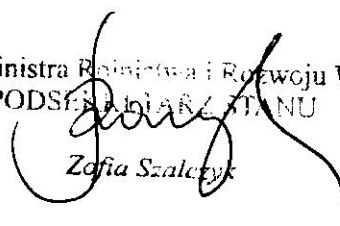 inistra Rolnictwa i Rozwoju W
PODSEKRETARZ STANU
Zofia Szalczyk